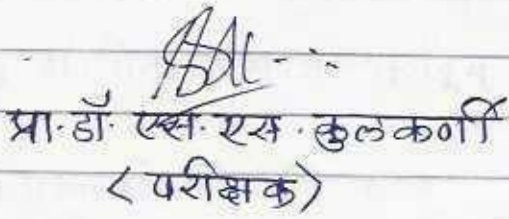 प्रा. डॉ. एस. एस. कुलकर्णी
(परीक्षक)